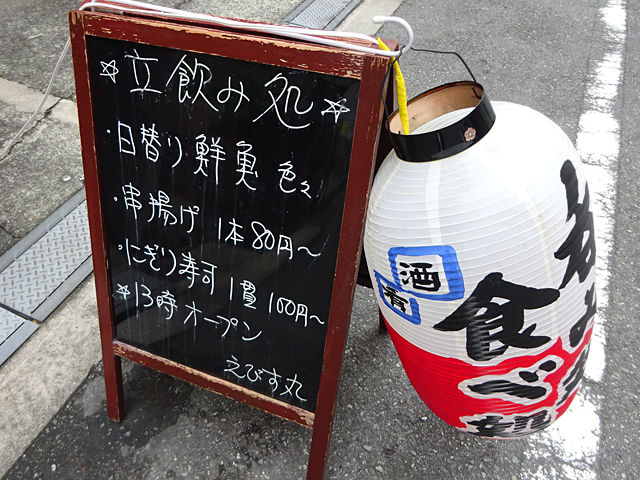 ☆立飲み処☆
・日替り鮮魚 色々
・串揚げ 1本80円～
・にぎり寿司 1貫100円～
＊13時オープン
えびす丸
酒
肴
食べ